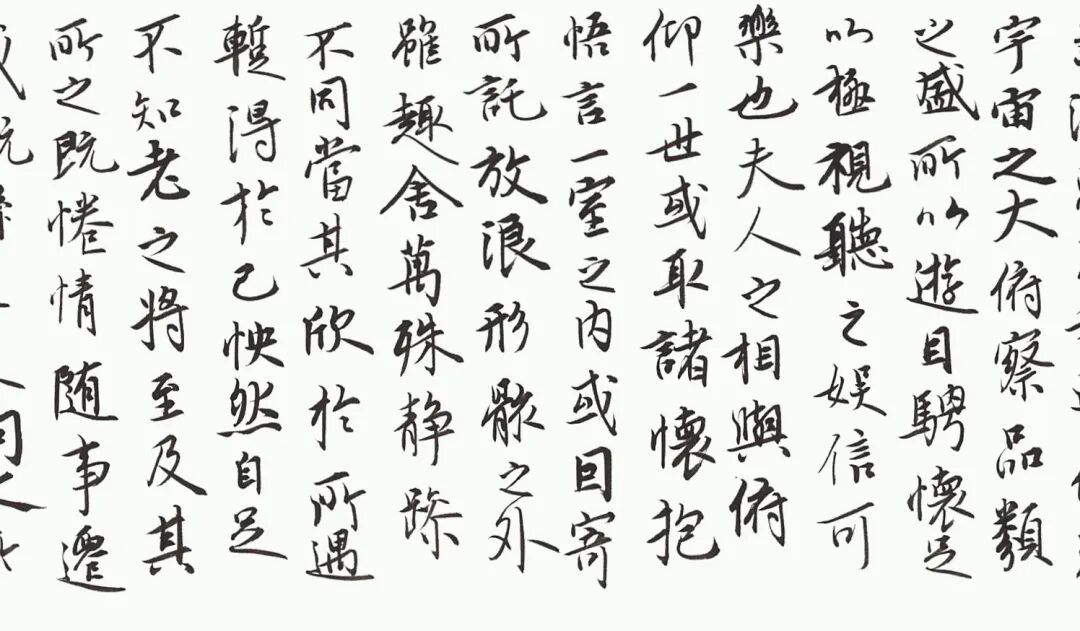 宇宙之大俯察品類
之盛所以遊目騁懷足
以極視聽之娱信可
樂也夫人之相與俯
仰一世或取諸懷抱
悟言一室之内或因寄
所託放浪形骸之外
雖趣舍萬殊静躁
不同當其欣於所遇
暫得於己怏然自足
不知老之將至及其
所之既惓情随事遷